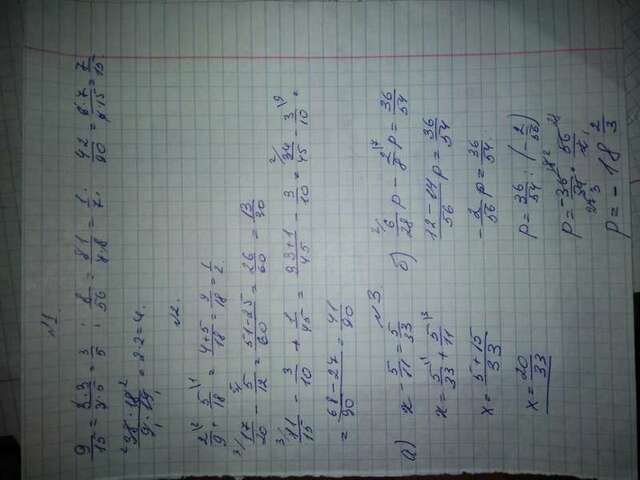 №1
9/15 = 3·3/3·5 = 3/5 ; 8/56 = 8·1/7·8 = 1/7 ; 42/90 = 6·7/6·15 = 7/15.
= 2·2=4.
№2.
2/9 + 5/18 = 4+5/18 = 9/18 = 1/2.
17/20 - 5/12 = 51-25/60 = 26/60 = 13/30
11/15 - 3/10 + 1/45 = 33+1/45 - 3/10 = 34/45 - 3/10 =
= 68-27/90 = 41/90
№3
а) x - 5/11 = 5/33
x = 5/33 + 5/11
x = 5+15/33
x = 20/33
б) 6/28 p - 2/8 p = 36/54
12-14/56 p = 36/54
- 2/56 p = 36/54.
p = 36/54 : (- 2/56)
p = - 18 2/3